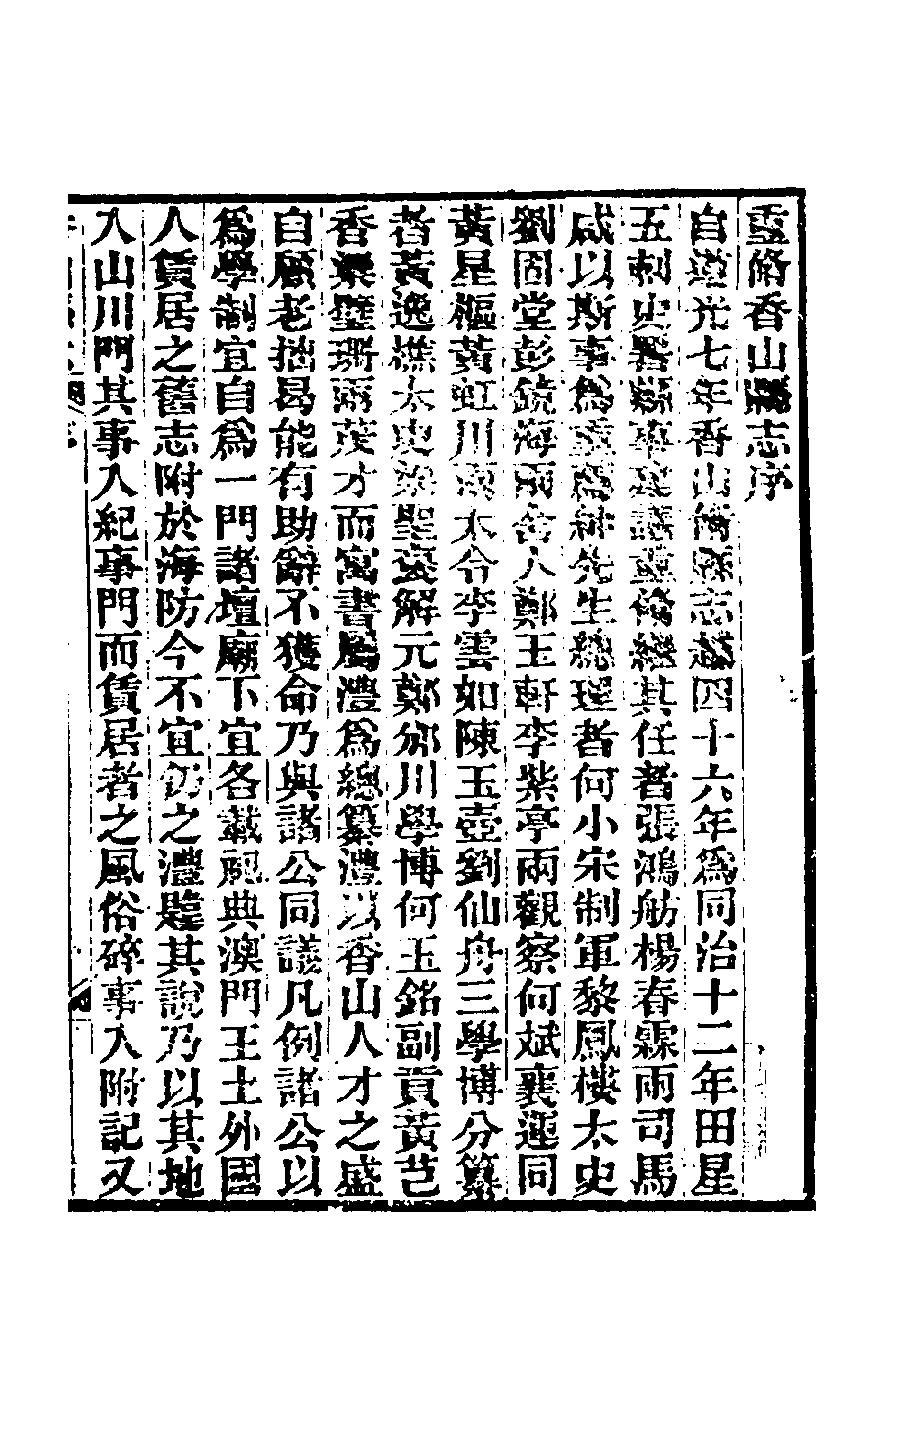 重脩香山縣志序
自道光七年香山脩縣志越四十六年為同治十二年田星
五刺史署縣事建議重脩繼其任者張鴻舫楊春霖兩司馬
咸以斯事為重薦紳先生總理者何小宋制軍黎鳳樓太史
劉固堂彭鏡海兩舍人鄭玉軒李紫亭兩觀察何斌襄運同
黃星樞黃虹川兩大令李雲如陳玉壺劉仙舟三學博分纂
者黃逸樵太史梁聖褒解元鄭邠川學博何玉銘副貢黃芑
香梁璧珊兩茂才而寓書屬澧為總纂澧以香山人才之盛
自顧老拙曷能有助辭不獲命乃與諸公同議凡例諸公以
為學制宜自為一門諸壇廟下宜各載祀典澳門王土外國
人賃居之舊志附於海防今不宜仍之澧韙其說乃以其地
入山川門其事入紀事門而賃居者之風俗碎事入附記又